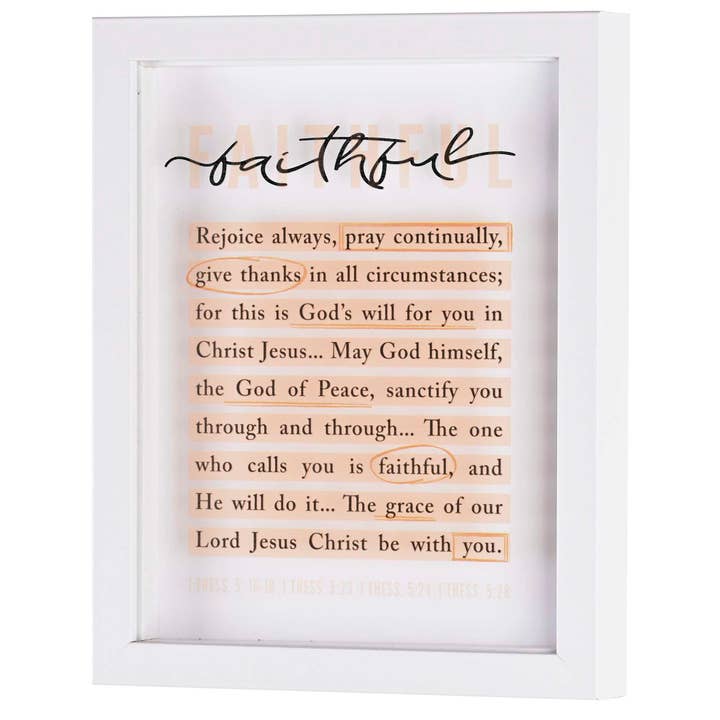 FAITHFUL
faithful
Rejoice always, pray continually,
give thanks in all circumstances;
for this is God's will for you in
Christ Jesus... May God himself,
the God of Peace, sanctify you
through and through... The one
who calls you is faithful, and
He will do it... The grace of our
Lord Jesus Christ be with you.
1 THESS. 5:16-18 1 THESS. 5:23 1 THESS. 5:24 1 THESS. 5:28